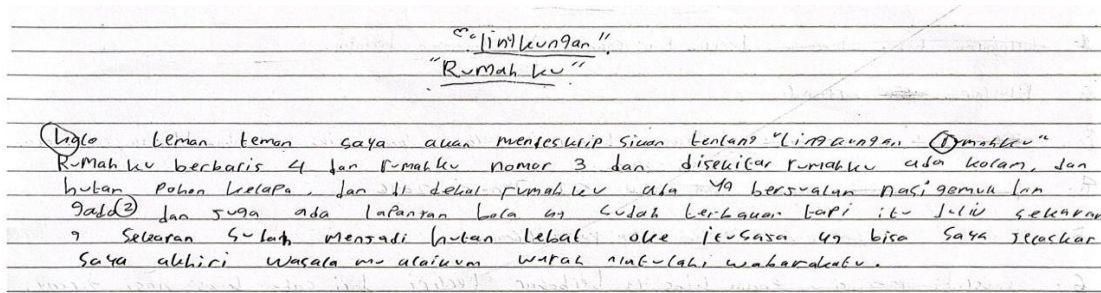 "lingkungan"
"Rumah ku"
Halo teman teman saya akan mendeskripsikan tentang "Lingkungan rumahku"
Rumahku berbaris 4 dan rumahku nomor 3 dan disekitar rumahku ada kolam, dan
hutan Pohon kelapa, dan di dekat rumahku ada yg berjualan nasi gemuk dan
gado② dan juga ada lapangan bola yg sudah tapi itu dulu sekarang
Sekaran sudah menjadi hutan lebat oke itu saja yg bisa saya
Saya akhiri wasala mu alaikum warah matulahi wabarakatu.